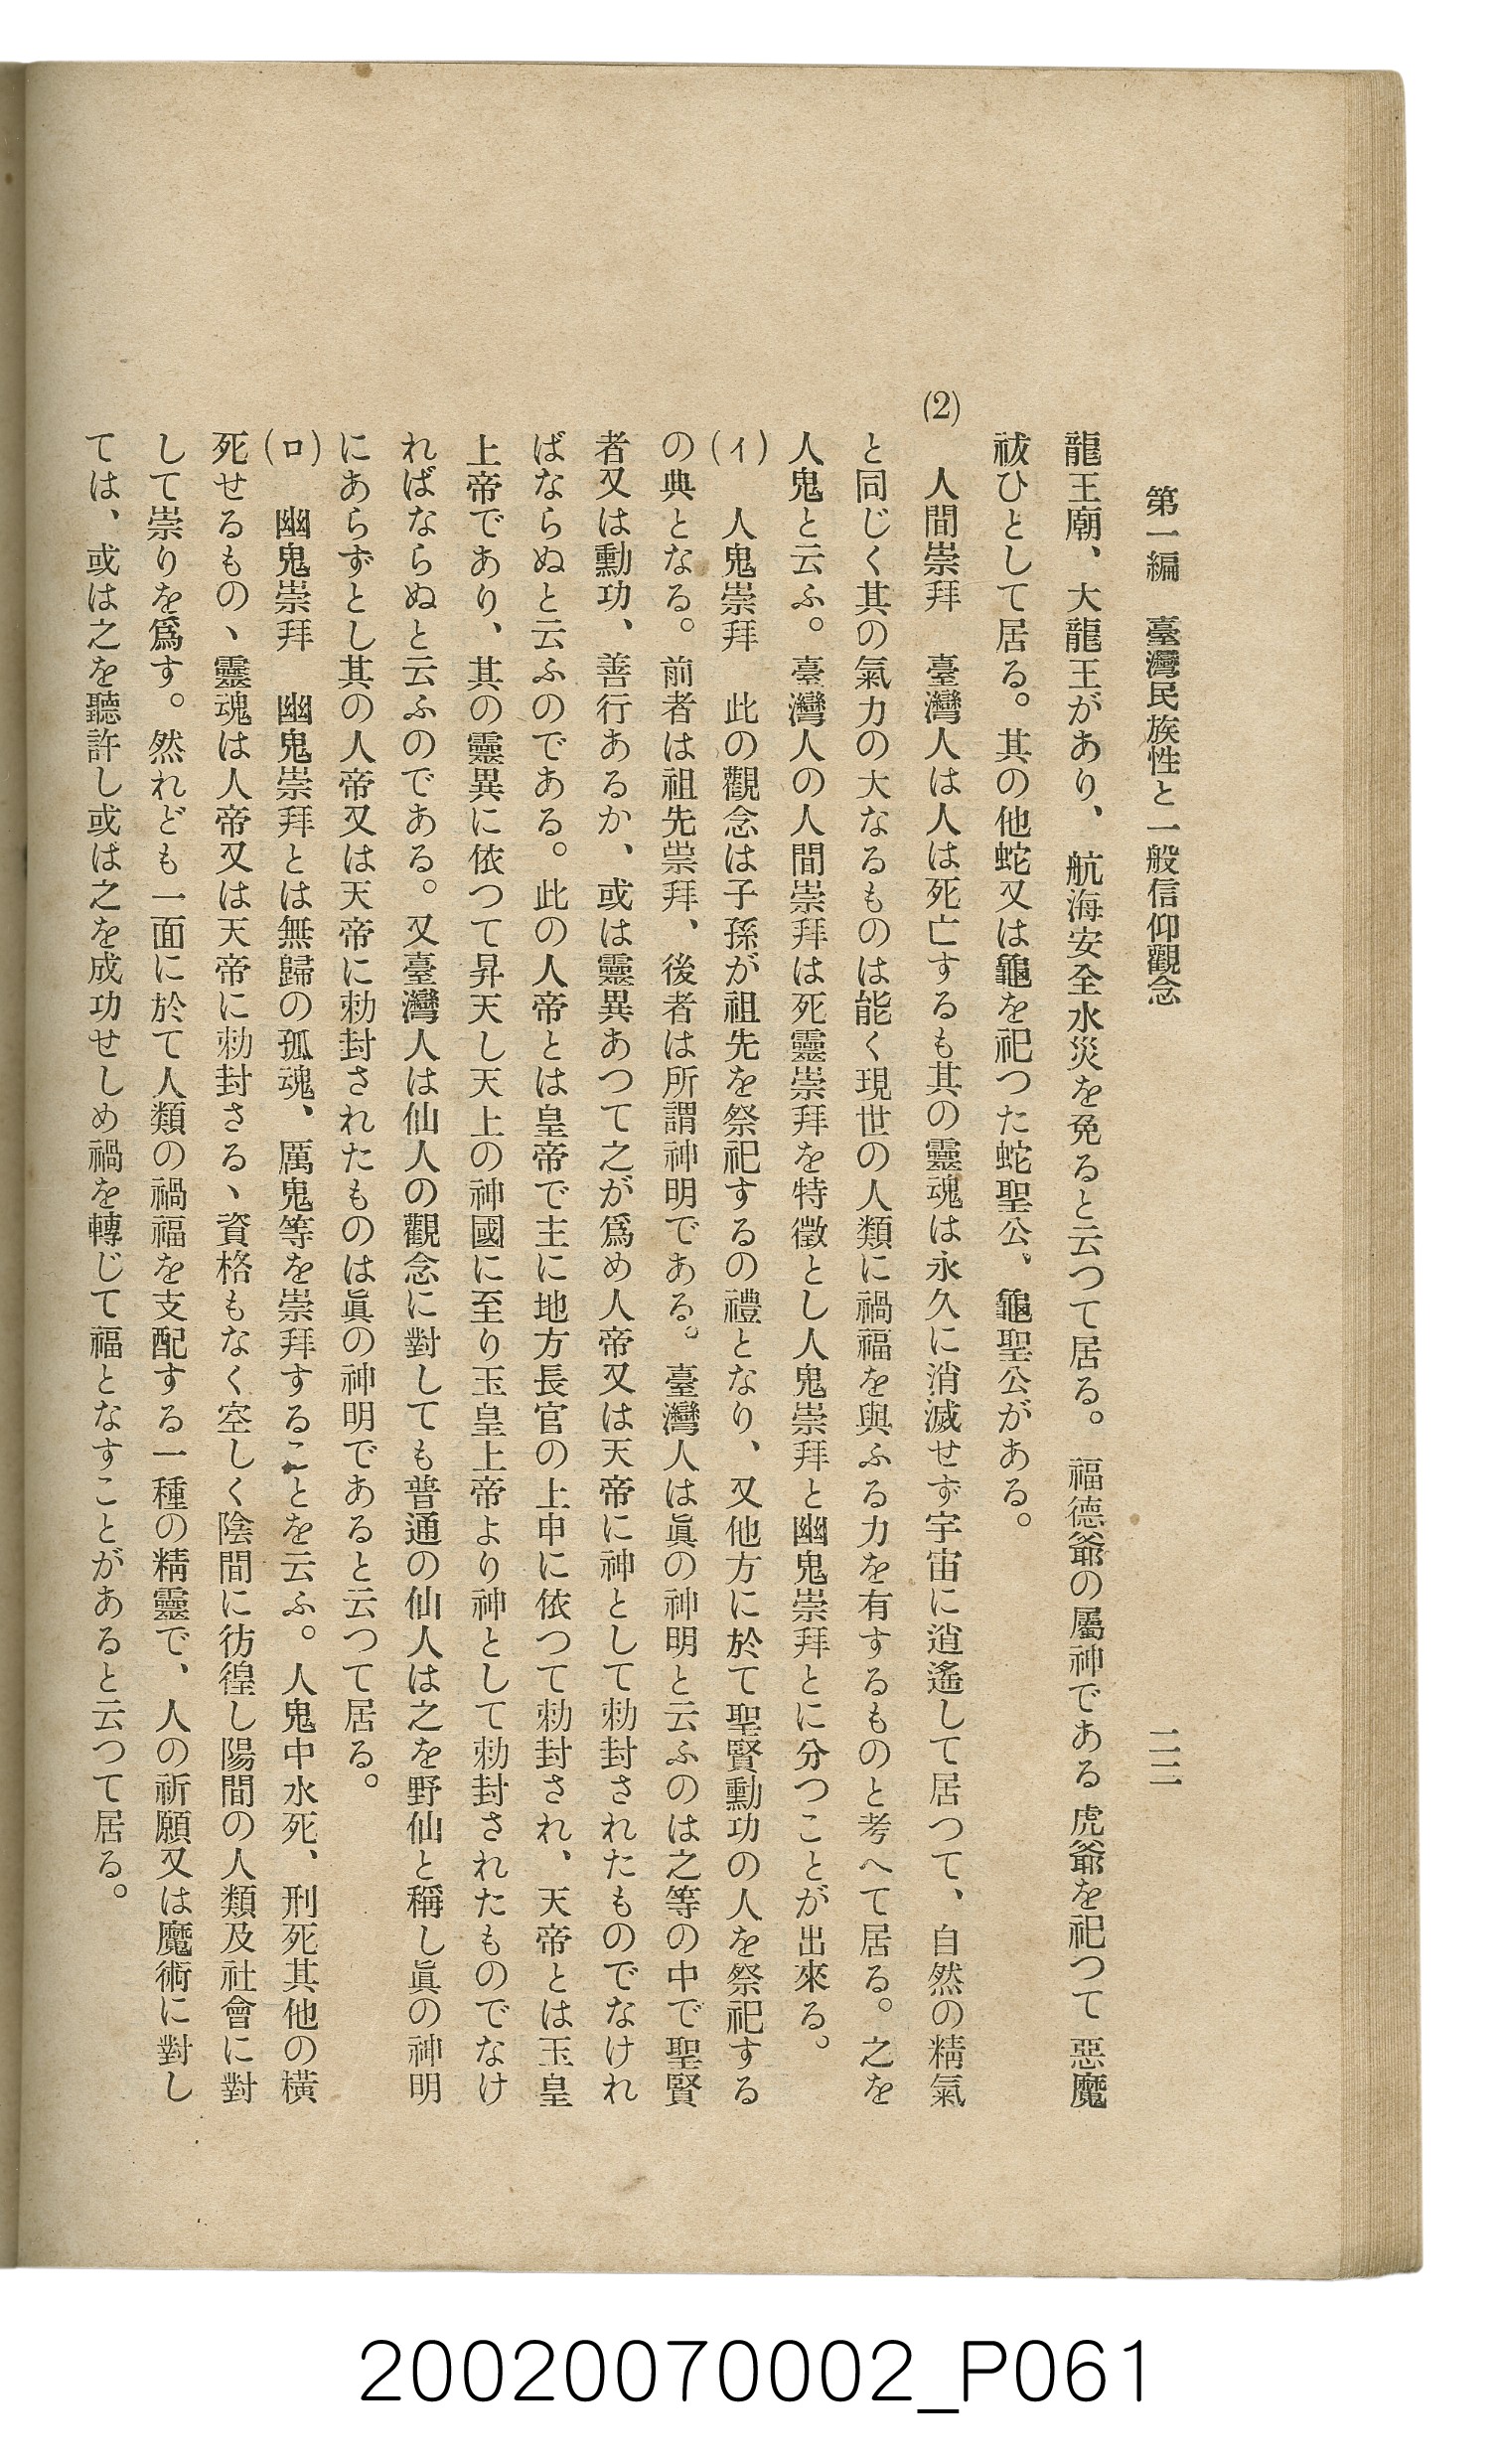 第一編　臺灣民族性と一般信仰觀念
二二
龍王廟、大龍王があり、航海安全水災を免ると云つて居る。福德爺の屬神である虎爺を祀つて惡魔
祓ひとして居る。其の他蛇又は龜を祀つた蛇聖公、龜聖公がある。
(2)　人間崇拜　臺灣人は人は死亡するも其の靈魂は永久に消滅せず宇宙に逍遙して居つて、自然の精氣
と同じく其の氣力の大なるものは能く現世の人類に禍福を與ふる力を有するものと考へて居る。之を
人鬼と云ふ。臺灣人の人間崇拜は死靈崇拜を特徵とし人鬼崇拜と幽鬼崇拜とに分つことが出來る。
(イ)　人鬼崇拜　此の觀念は子孫が祖先を祭祀するの禮となり、又他方に於て聖賢勳功の人を祭祀する
の典となる。前者は祖先崇拜、後者は所謂神明である。臺灣人は眞の神明と云ふのは之等の中で聖賢
者又は勳功、善行あるか、或は靈異あつて之が爲め人帝又は天帝に神として勅封されたものでなけれ
ばならぬと云ふのである。此の人帝とは皇帝で主に地方長官の上申に依つて勅封され、天帝とは玉皇
上帝であり、其の靈異に依つて昇天し天上の神國に至り玉皇上帝より神として勅封されたものでなけ
ればならぬと云ふのである。又臺灣人は仙人の觀念に對しても普通の仙人は之を野仙と稱し眞の神明
にあらずとし其の人帝又は天帝に勅封されたものは眞の神明であると云つて居る。
(ロ)　幽鬼崇拜　幽鬼崇拜とは無歸の孤魂、厲鬼等を崇拜することを云ふ。人鬼中水死、刑死其他の橫
死せるもの、靈魂は人帝又は天帝に勅封さる、資格もなく空しく陰間に彷徨し陽間の人類及社會に對
して崇りを爲す。然れども一面に於て人類の禍福を支配する一種の精靈で、人の祈願又は魔術に對し
ては、或は之を聽許し或は之を成功せしめ禍を轉じて福となすことがあると云つて居る。
20020070002_P061